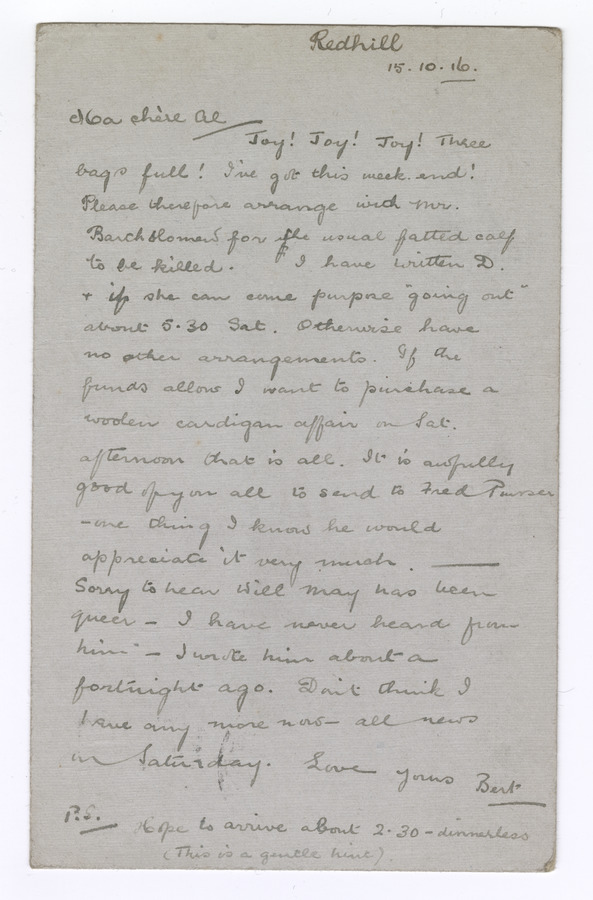 Redhill
15.10.16.
Ma chère Al
Joy! Joy! Joy! Three
bags full! I've got this week-end!
Please therefore arrange with Mr.
for the usual fatted calf
to be killed. I have written D.
+ if she can come purpose "going out"
about 5.30 Sat. Otherwise have
no other arrangements. If the
funds allow I want to purchase a
woolen cardigan affair on Sat.
afternoon that is all. It is awfully
good of you all to send to Fred Purser
-one thing I know he would
appreciate it very much.
Sorry to hear Will May has been
queer - I have never heard from
him - I wrote him about a
fortnight ago. Don't think I
have any more now - all news
on Saturday. Love yours Bert
P.S. Hope to arrive about 2.30 - dinnerless
(This is a gentle hint).